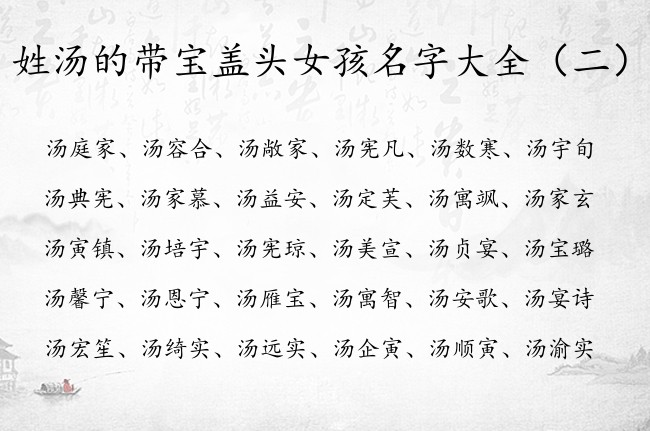 姓汤的带宝盖头女孩名字大全（二）
汤庭家、汤容合、汤敞家、汤宪凡、汤数寒、汤宇旬
汤典宪、汤家慕、汤益安、汤定芙、汤寓飒、汤家玄
汤寅镇、汤培宇、汤宪琼、汤美宣、汤贞宴、汤宝璐
汤馨宁、汤恩宁、汤雁宝、汤寓智、汤安歌、汤宴诗
汤宏笙、汤绮实、汤远实、汤企寅、汤顺寅、汤渝实